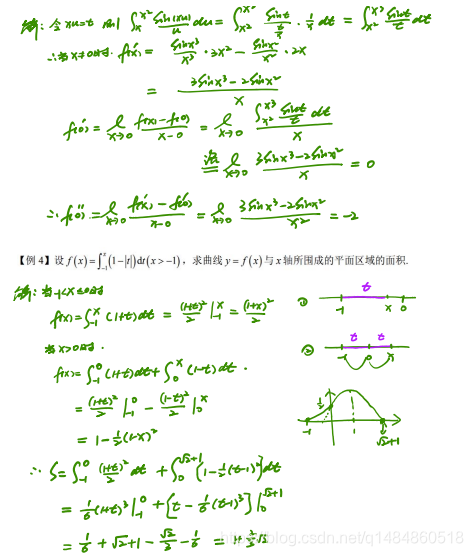 解: 令xu=t 则 ∫_x^{x²} sin(xu)/u du = ∫_{x²}^{x³} sint/(t/x) · 1/x dt = ∫_{x²}^{x³} sint/t dt
∴当x≠0时. f'(x) = sinx³/x³ · 3x² − sinx²/x² · 2x
= (3sinx³−2sinx²)/x
f'(0) = l_{x→0} (f(x)−f(0))/(x−0) = l_{x→0} (∫_{x²}^{x³} sint/t dt)/x
洛 l_{x→0} (3sinx³−2sinx²)/x = 0
∴f''(0) = l_{x→0} (f'(x)−f'(0))/(x−0) = l_{x→0} (3sinx³−2sinx²)/x² = −2
【例 4】设 f(x)=∫_{-1}^x (1−|t|)dt(x>−1)，求曲线 y=f(x)与x轴所围成的平面区域的面积.
解: 当−1<x≤0时
f(x)=∫_{-1}^x (1+t)dt = (1+t)²/2 |_{-1}^x = (1+x)²/2
① t
-1 x 0
当x>0时.
② t t
-1 0 x
f(x)=∫_{-1}^0 (1+t)dt+∫_0^x (1−t)dt.
= (1+t)²/2 |_{-1}^0 − (1−t)²/2 |_0^x
= 1−½(1−x)²
½
-1 1 √2+1
∴ S=∫_{-1}^0 (1+t)²/2 dt + ∫_0^{√2+1} [1−½(t−1)²]dt
= ⅙(1+t)³|_{-1}^0 + [t−⅙(t−1)³]|_0^{√2+1}
= ⅙+√2+1−√2/3−⅙ = 1+⅔√2
https://blog.csdn.net/q1484860518